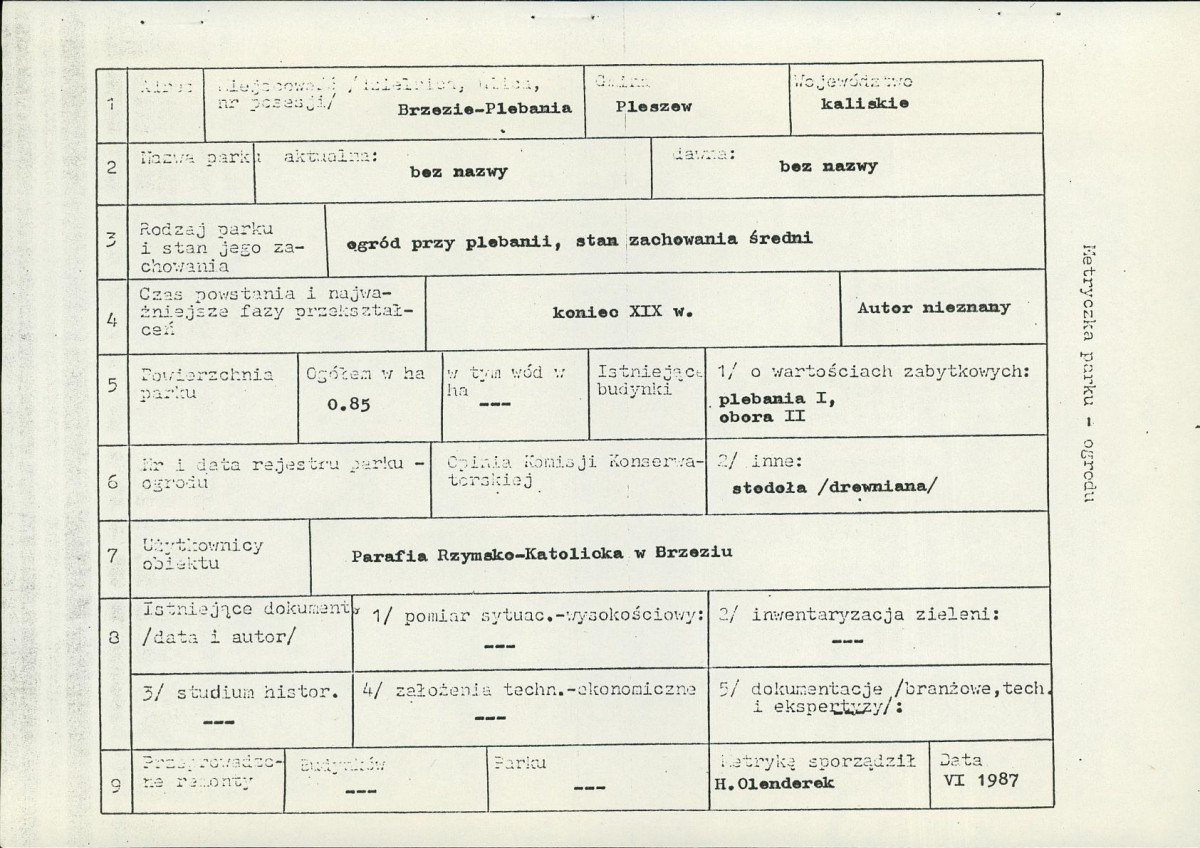 1
Adres
Miejscowość /dzielnica, ulica,
nr posesji/
Brzezie-Plebania
Gmina
Pleszew
Województwo
kaliskie
2
Nazwa parku
aktualna:
bez nazwy
dawna:
bez nazwy
3
Rodzaj parku
i stan jego za-
chowania
ogród przy plebanii, stan zachowania średni
4
Czas powstania i najwa-
żniejsze fazy przekształ-
ceń
koniec XIX w.
Autor nieznany
5
Powierzchnia
parku
Ogółem w ha
0.85
w tym wód w
ha
---
Istniejące
budynki
1/ o wartościach zabytkowych:
plebania I,
obora II
6
Nr i data rejestru parku -
ogrodu
Opinia Komisji Konserwa-
torskiej
2/ inne:
stodoła /drewniana/
7
Użytkownicy
obiektu
Parafia Rzymsko-Katolicka w Brzeziu
8
Istniejące dokumenty
/data i autor/
1/ pomiar sytuac.-wysokościowy:
---
2/ inwentaryzacja zieleni:
---
3/ studium histor.
---
4/ założenia techn.-ekonomiczne
---
5/ dokumentacje /branżowe, tech.
i ekspertyzy/:
---
9
Przeprowadzo-
ne remonty
Budynków
---
Parku
---
Metrykę sporządził
H.Olenderek
Data
VI 1987
Metryczka parku - ogrodu